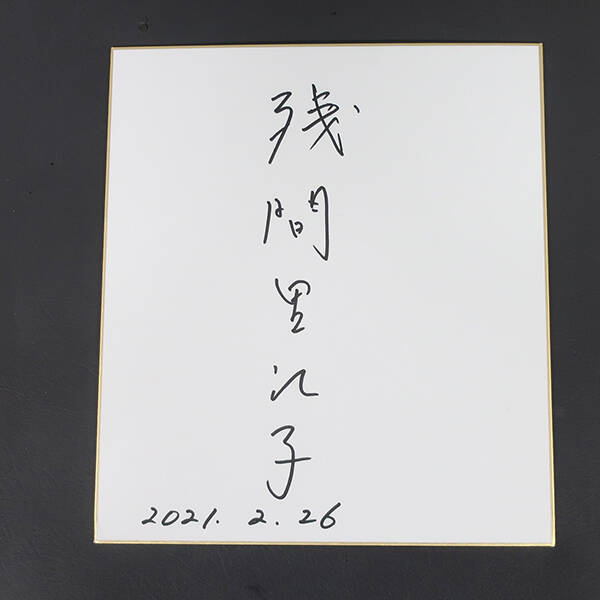 残間里江子
2021. 2. 26